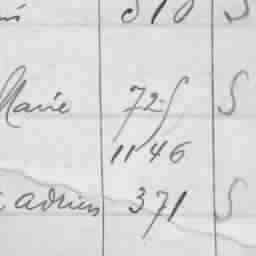 510 S
Marie 725 S
1146
adrien 371 S